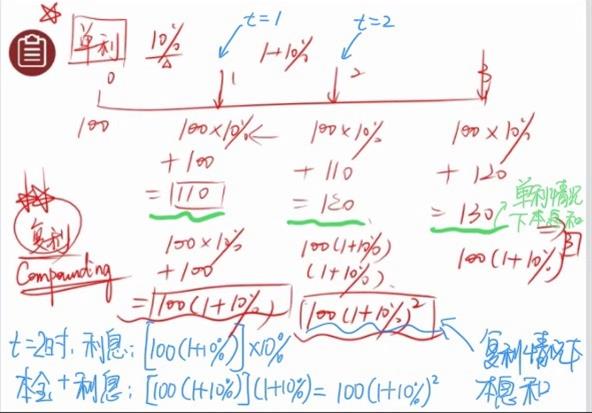 t=1 t=2
单利 10% 1+10%
0 1 2 3
100 100×10% 100×10% 100×10%
+100 +110 +120
=110 =120 =130
单利情况
下本息和
复利 100×10% 100(1+10%) 100(1+10%)³
Compounding +100 (1+10%)
=100(1+10%) 100(1+10%)²
t=2时,利息:[100(1+10%)]×10%
本金+利息:[100(1+10%)](1+10%)=100(1+10%)²
复利情况下
本息和